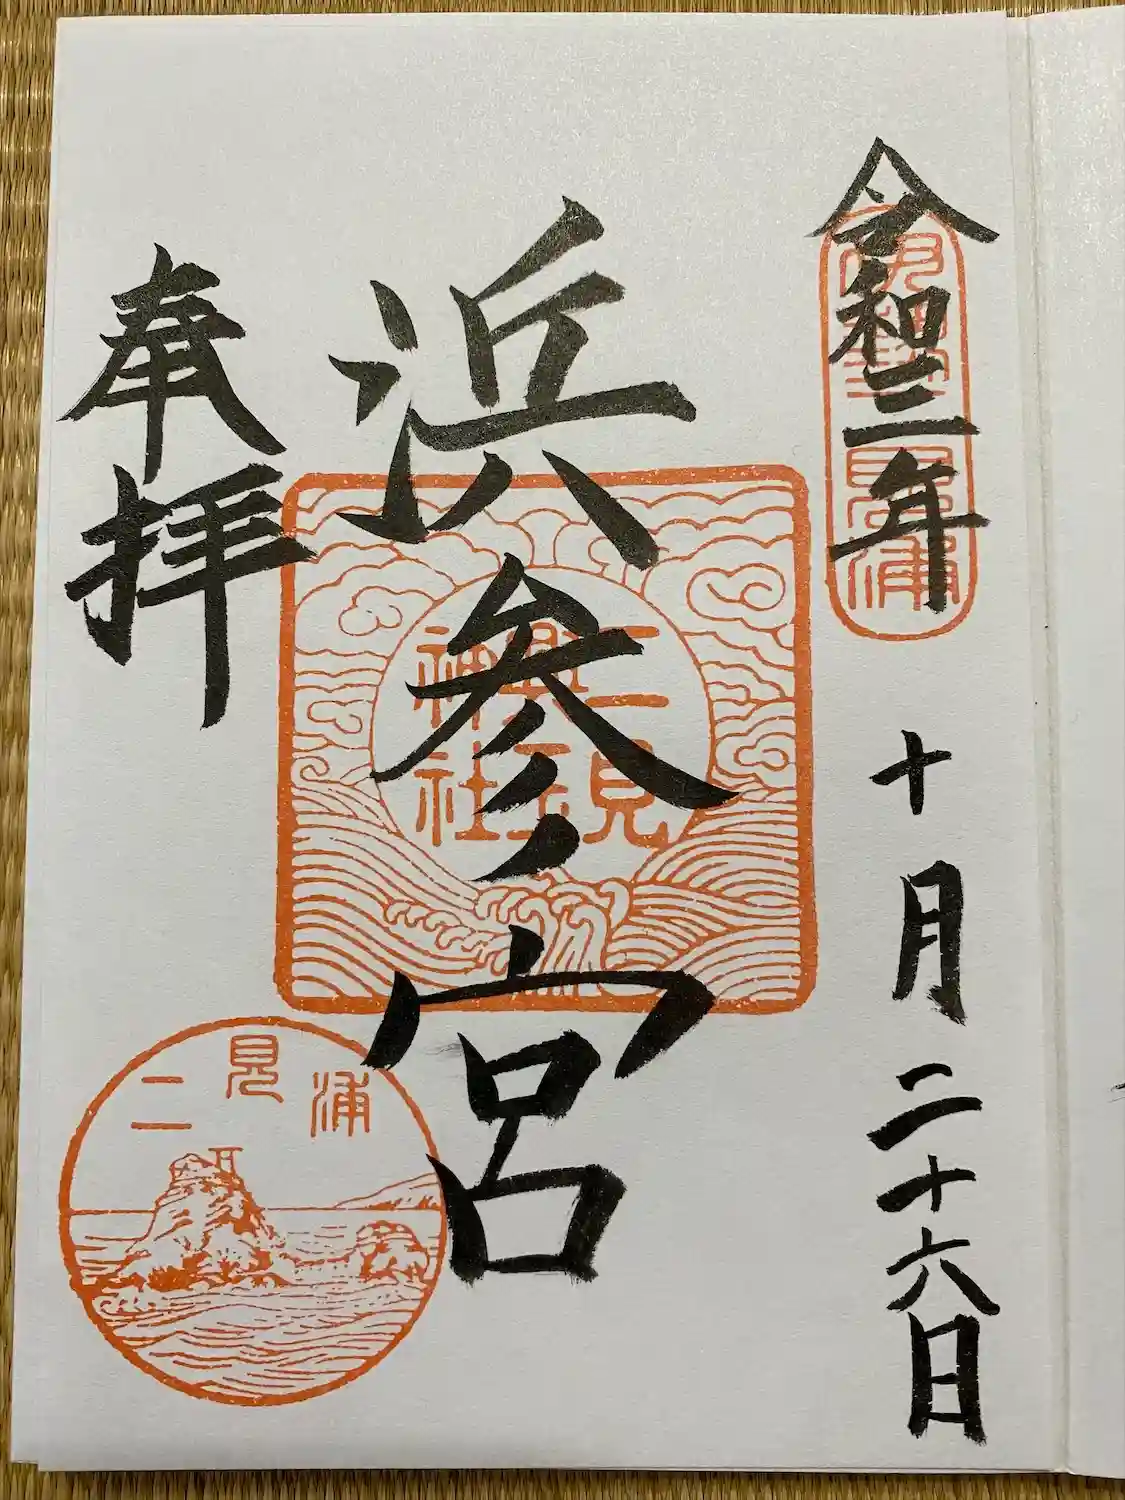 令和三年 十月二十六日
伊勢二見浦
浜参宮
二見
興玉
神社
奉拝
二見浦